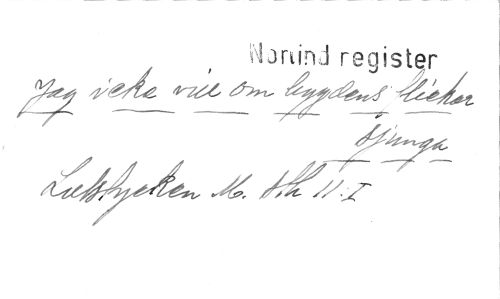 Norlind register
Jag icke vill om bygdens flickor
sjunga
Latstycken M. Sth 11:I